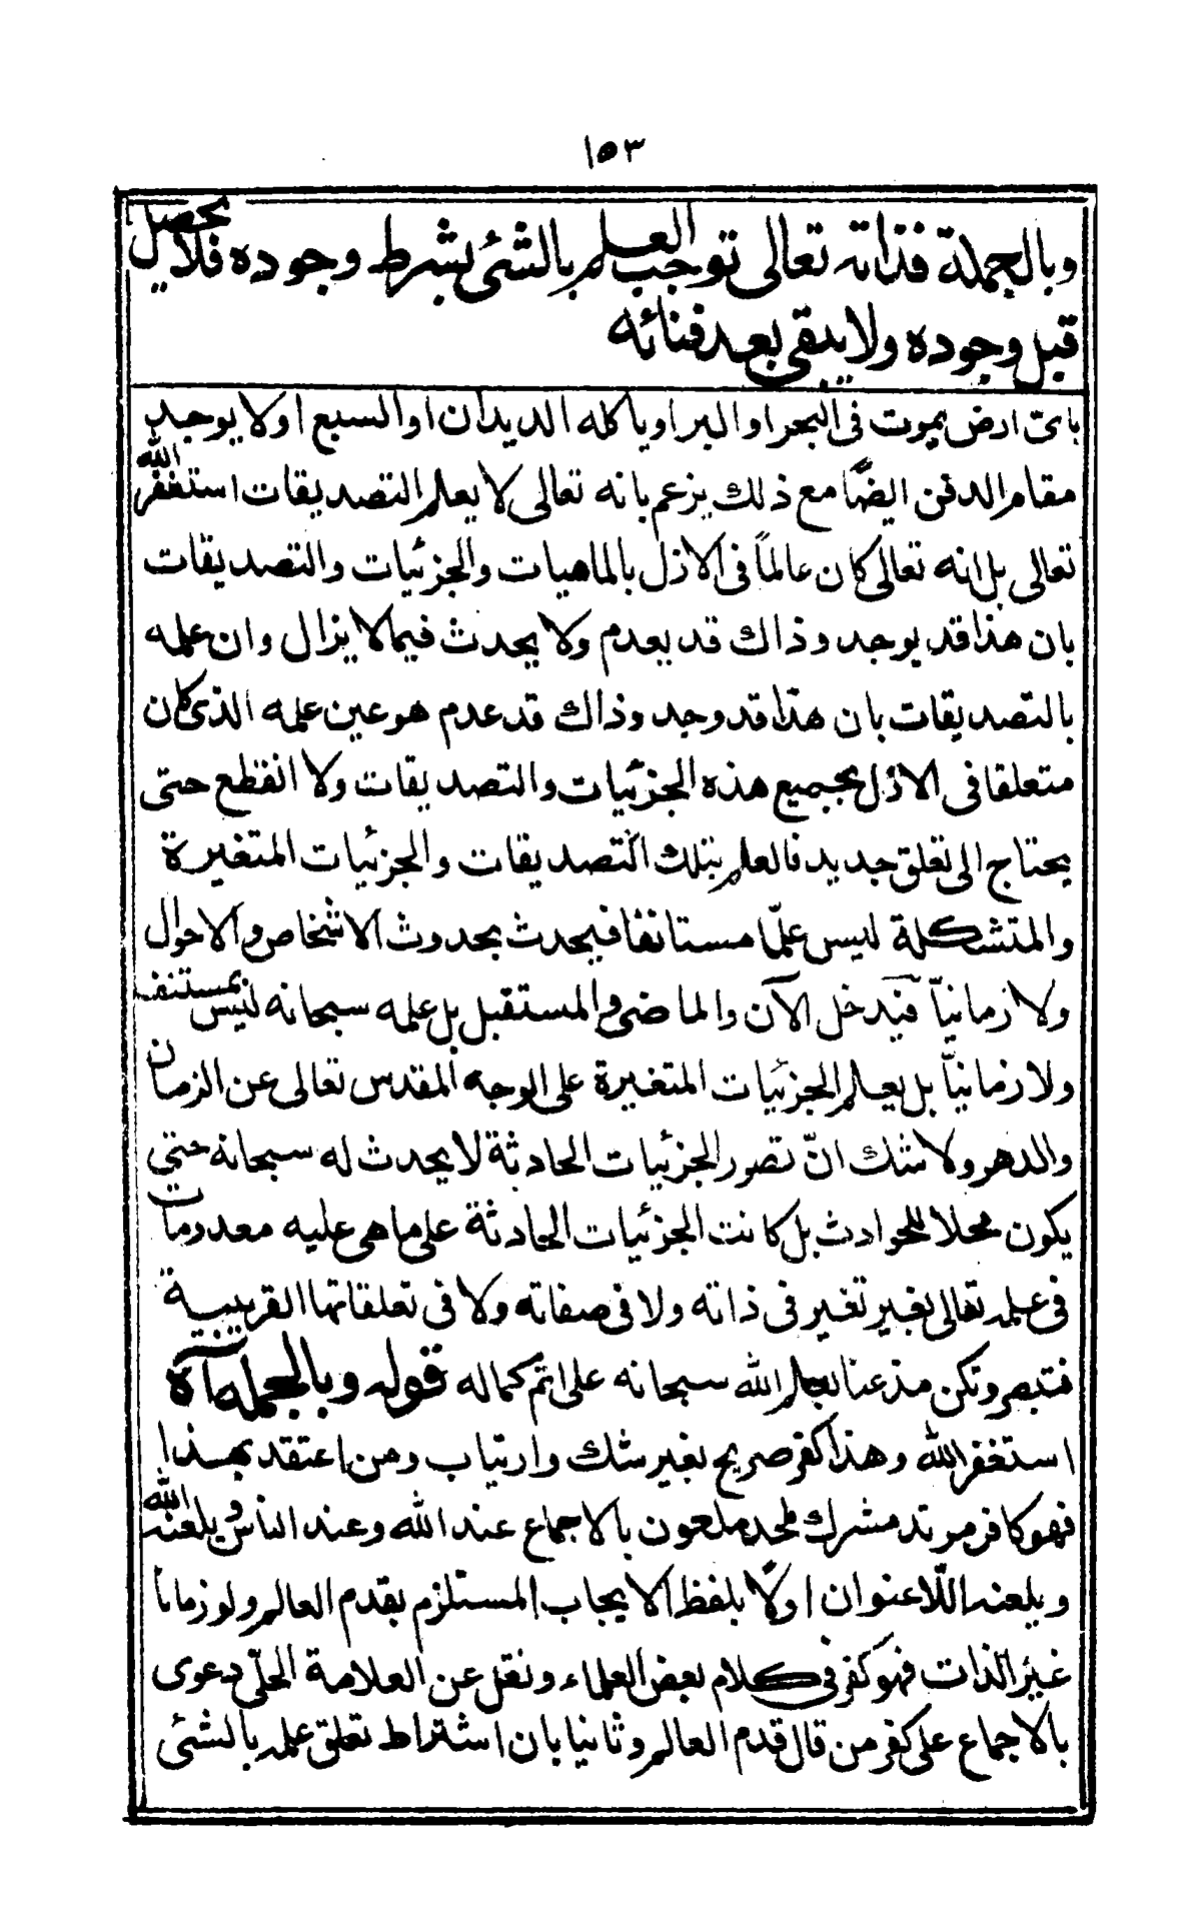 ١٥٣
وبالجملة فذاته تعالى توجب العلم بالشئ بشرط وجوده فلا يحصل
قبل وجوده ولا يبقى بعد فنائه
باىّ ارض يموت فى البحر او البر او ياكله الديدان او السبع او لا يوجد
مقام الدفن ايضًا مع ذلك يزعم بانه تعالى لا يعلم التصديقات استغفر الله
تعالى بل انه تعالى كان عالماً فى الازل بالماهيات والجزئيات والتصديقات
بان هذا قد يوجد وذاك قد يعدم ولا يحدث فيما لا يزال وان علمه
بالتصديقات بان هذا قد وجد وذاك قد عدم هو عين علمه الذى كان
متعلقا فى الازل بجميع هذه الجزئيات والتصديقات ولا انقطع حتى
يحتاج الى تعلق جديد فالعلم بتلك التصديقات والجزئيات المتغيرة
والمتشكلة ليس علمًا مستانفا فيحدث بحدوث الاشخاص والاحوال
ولا زمانيًّا فيدخل الآن والماضى والمستقبل بل علمه سبحانه ليس بمستنف
ولا زمانيًّا بل يعلم الجزئيات المتغيرة على الوجه المقدس تعالى عن الزمان
والدهر ولا شك انّ تصور الجزئيات الحادثة لا يحدث له سبحانه حتى
يكون محلا للحوادث بل كانت الجزئيات الحادثة على ما هى عليه معدومات
فى علمه تعالى بغير تغير فى ذاته ولا فى صفاته ولا فى تعلقاتها القريبية
فتبصر وتكن مذعنا بعلم الله سبحانه على اتم كماله قوله وبالجملة آه
استغفر الله وهذا كفر صريح بغير شك وارتياب ومن اعتقد بهذا
فهو كافر مرتد مشرك ملحد ملعون بالاجماع عند الله وعند الناس ويلعنه الله
ويلعنه اللاعنوان اولًا بلفظ الايجاب المستلزم بقدم العالم ولو زمانا
غير الذات فهو كفر فى كلام بعض العلماء ونقل عن العلامة الحلّى دعوى
بالاجماع على كفر من قال قدم العالم وثانيا بان اشتراط تعلق علمه بالشئ